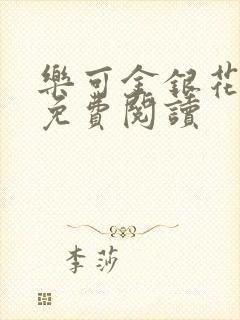 樂可金銀花
免費閱讀
李莎